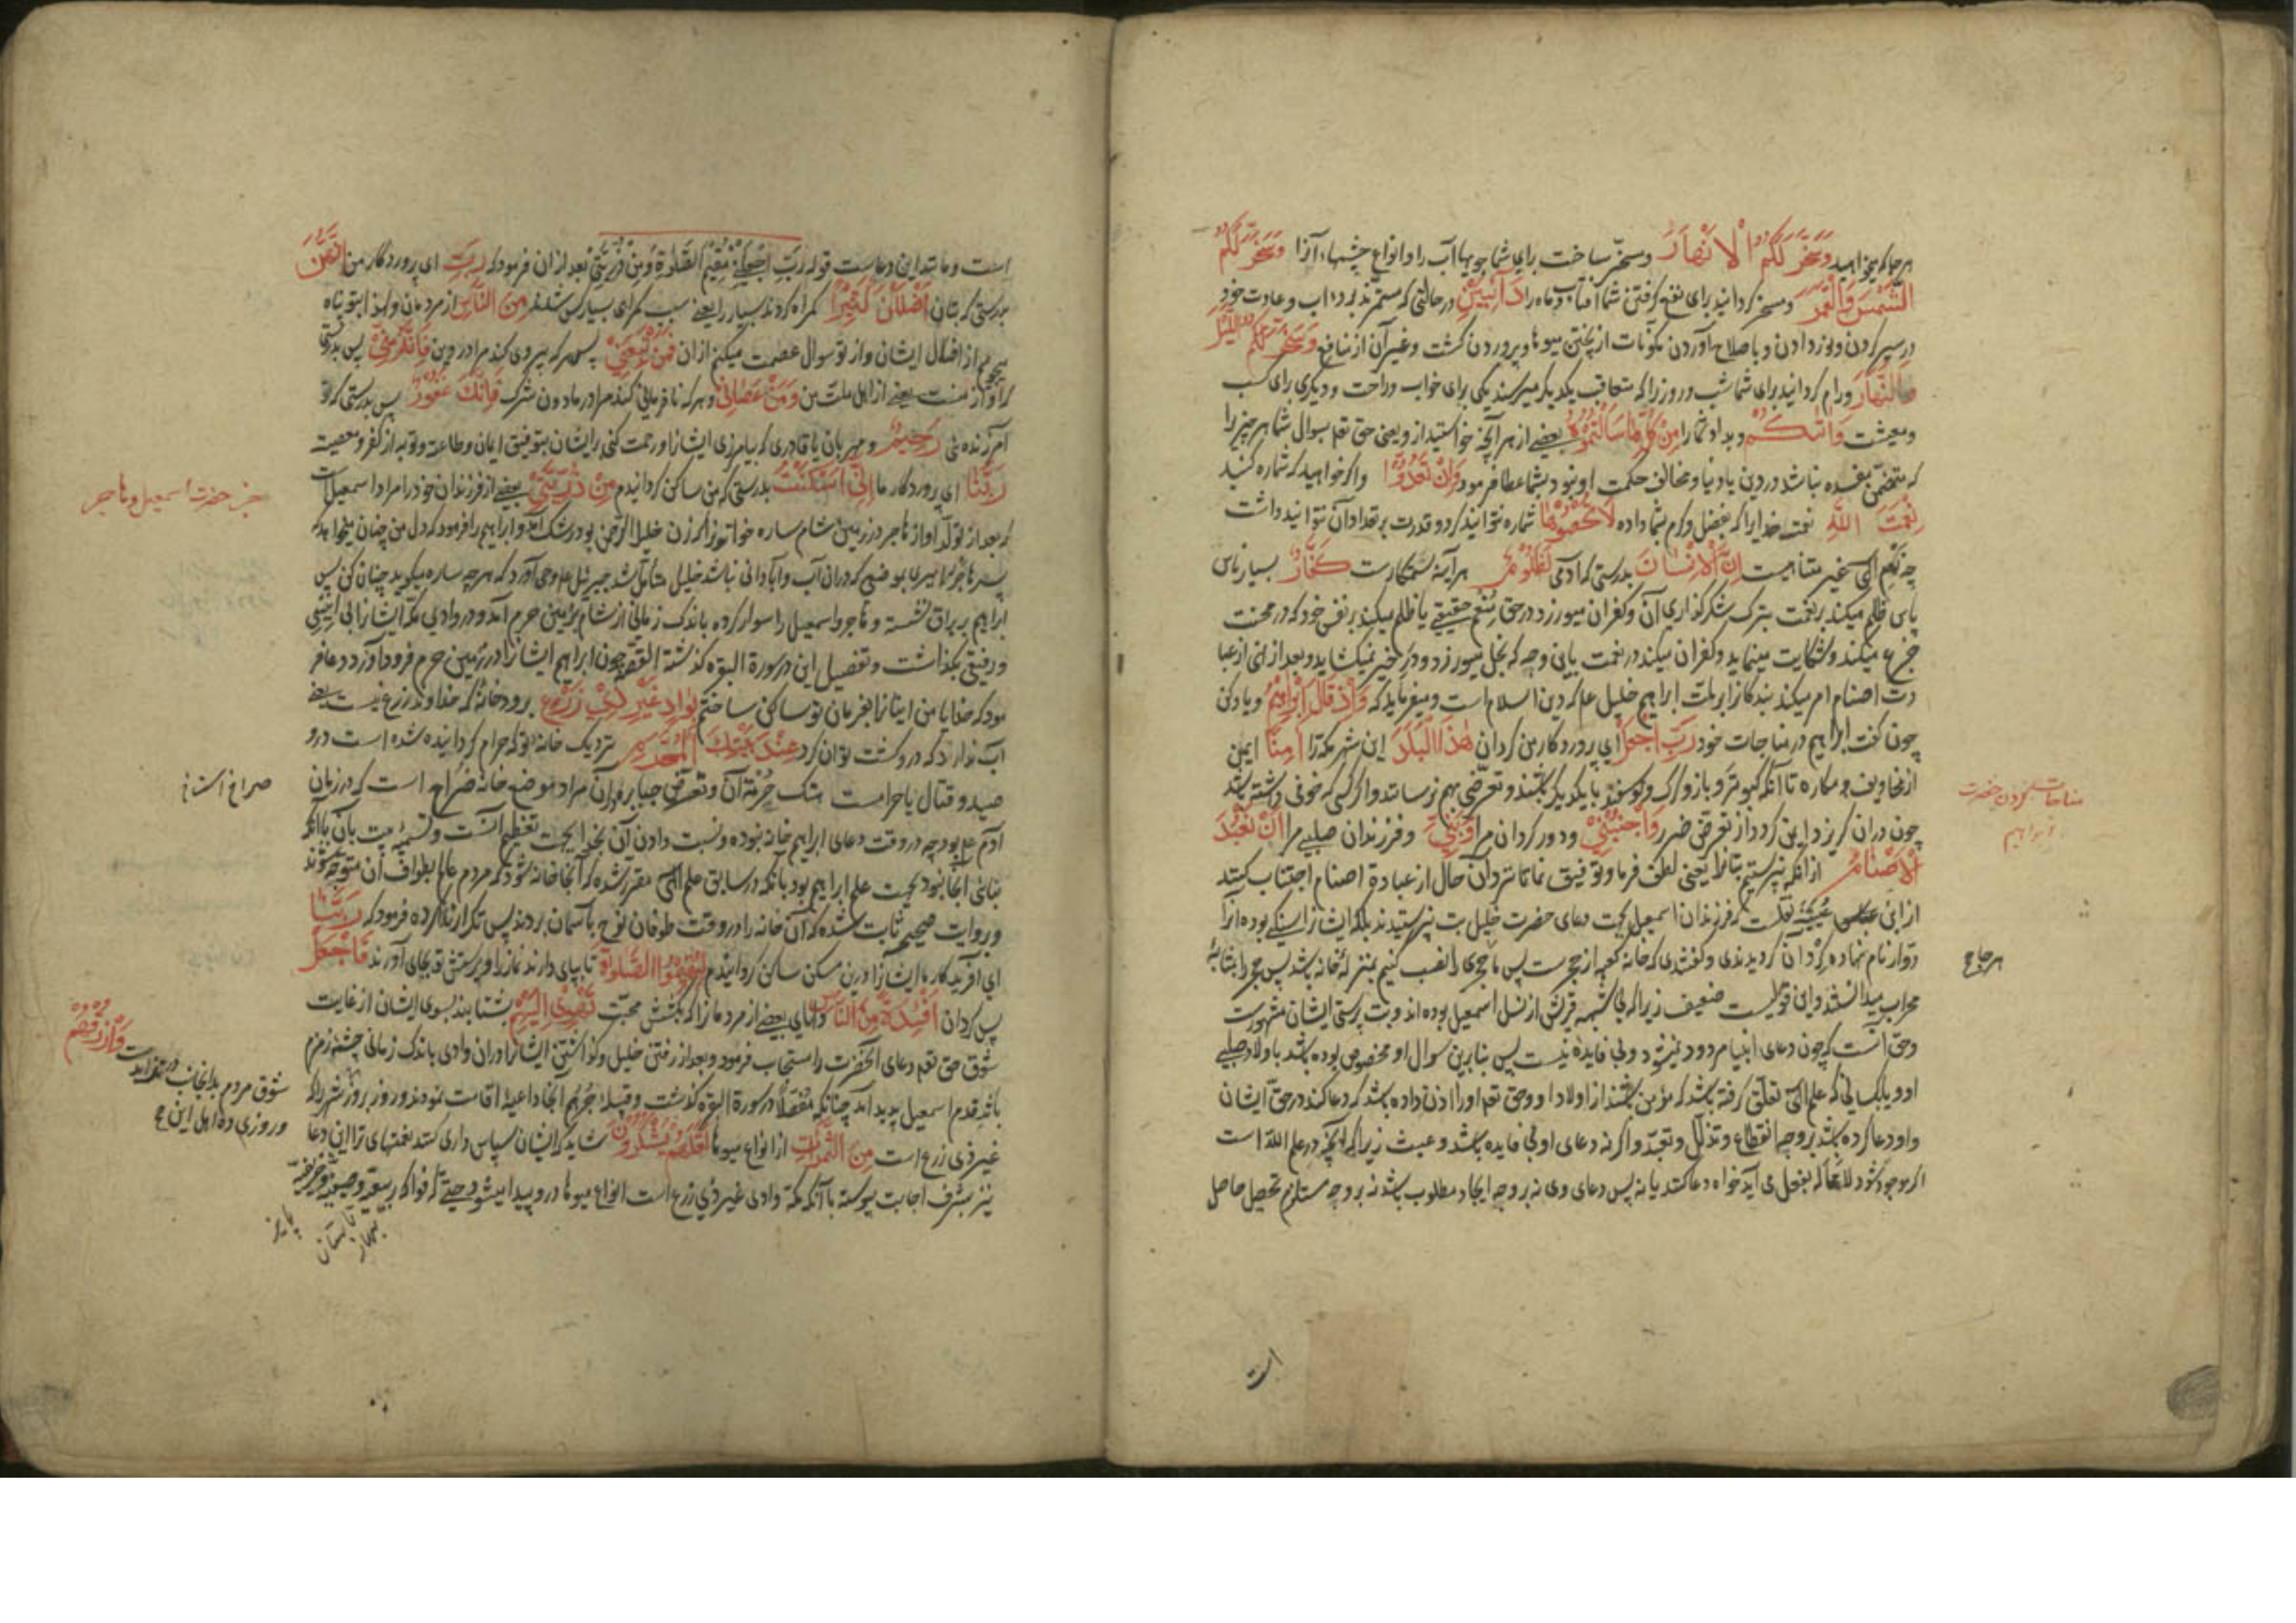 هر جا که میخواهید وَسَخَّرَ لَكُمُ الْاَنْهَارَ و مسخّر ساخت برای شما جویهای آب را و انواع چشمها، آنرا وَسَخَّرَ لَكُمُ
الشَّمْسَ وَالْقَمَرَ و مسخر کردانید برای نفع کرفتن شما آفتاب و ماه را دَآئِبَيْنِ در حالتی که مستمرند بر دءاب و عادت خود
در سیر کردن و نور دادن و باصلاح آوردن مکونات از پختن میوها و پروردن کشت و غیر آن از منافع وَسَخَّرَ لَكُمُ اللَّيْلَ
وَالنَّهَارَ و رام کردانید برای شما شب و روز را که متعاقب یکدیکر میرسند یکی برای خواب و راحت و دیکری برای کسب
و معیشت وَآتٰىكُمْ و بداد شما را مِنْ كُلِّ مَا سَاَلْتُمُوهُ بعضی از هر آنچه خواستید از و یعنی حق تعم سوال شما هر چیز را
که متضمن مفسده نباشد در دین یا دنیا و مخالف حکمت او نبود بشما عطا فرمود وَاِنْ تَعُدُّوا و اکر خواهید که شماره کنید
نِعْمَتَ اللّٰهِ نعمت خدایرا که بفضل و کرم بشما داده لَا تُحْصُوهَا شماره نتوانید کرد و قدرت بر تعداد آن نتوانید داشت
چه نعم الهی غیر متناهیست اِنَّ الْاِنْسَانَ بدرستی که آدمی لَظَلُومٌ هر آینه ستمکارست كَفَّارٌ بسیار ناس
پاس ظلم میکند بر نعمت بترک شکر کذاری آن و کفران میورزد در حق منعم حقیقی یا ظلم میکند بر نفس خود که در محنت
جزع میکند و شکایت مینماید و کفران میکند در نعمت باین وجه که بخل میورزد و در خیر نمیکشاید و بعد از نهی از عبا
دت اصنام امر میکند بندکانرا بر ملت ابراهیم خلیل علم که دین اسلام است و میفرماید که وَاِذْ قَالَ اِبْرٰهِيمُ و یاد کن
چون کفت ابراهیم در مناجات خود رَبِّ اجْعَلْ ای پروردکار من کردان هٰذَا الْبَلَدَ این شهر مکه را اٰمِنًا ایمن
از مخاویف و مکاره تا آنکه کبوتر و باز و کرک و کوسفند با یکدیکر باشند و تعرض بهم نرسانند و اکر کسی که خوفی داشته باشد
چون در آن کریزد ایمن کردد از تعرض ضرر وَاجْنُبْنِي و دور کردان مرا وَبَنِيَّ و فرزندان صلبی مرا اَنْ نَعْبُدَ
الْاَصْنَامَ از آنکه بپرستیم بتانرا یعنی لطف فرما و توفیق نما تا در آن حال از عبادة اصنام اجتناب کنند
از ابن نقلست که فرزندان اسمعیل بجهت دعای حضرت خلیل بت نپرستیدند بلکه ایشانرا سنکی بوده آنرا
دوار نام نهاده کرد آن کردیدندی و کفتندی که خانه کعبه از حجرست پس ما حجری را نصب کنیم بمنزله خانه باشد پس حجر را بمثابه
محراب میدانستند و این قولیست ضعیف زیرا که بی شبهه قریش از نسل اسمعیل بوده اند و بت پرستی ایشان مشهورست
و حق آنست که چون دعای انبیا مردود نمیشود و بی فایده نیست پس بنابرین سوال او مخصوص بوده باشد باولاد صلبی
او و یا بکسانی که علم الهی تعلق کرفته باشد که مؤمن باشند از اولاد او و حق تعم او را اذن داده باشد که دعا کند در حق ایشان
و او دعا کرده باشد بر وجه انقطاع و تذلل و تعبد و اکر نه دعای او بی فایده باشد و عبث زیرا که آنچه در علم الله است
اکر بوجود شود لا محاله بفعل می آید خواه دعا کنند یا نه پس دعای وی نه بر وجه ایجاد مطلوب باشد نه بر وجه مستلزم تحصیل حاصل
است
مناجات کردن حضرت
ابراهیم
است و ما بعد این دعاست قوله رَبِّ اجْعَلْنِي مُقِيمَ الصَّلٰوةِ وَمِنْ ذُرِّيَّتِي بعد از آن فرمود که رَبِّ ای پروردکار من اِنَّهُنَّ
بدرستی که بتان اَضْلَلْنَ كَثِيرًا کمراه کردند بسیار را یعنی سبب کمراهی بسیار کس شدند مِنَ النَّاسِ از مردمان و لهذا بتو پناه
میجویم از اضلال ایشان و از تو سوال عصمت میکنم از آن فَمَنْ تَبِعَنِي پس هر که پیروی کند مرا در دین فَاِنَّهُ مِنِّي پس بدرستی
که او از منست یعنی از اهل ملت من وَمَنْ عَصَانِي و هر که نافرمانی کند مرا در مادون شرک فَاِنَّكَ غَفُورٌ پس بدرستی که تو
آمرزنده ئی رَحِيمٌ و مهربان یا قادری که بیامرزی ایشانرا و رحمت کنی بر ایشان بتوفیق ایمان و طاعت و توبه از کفر و معصیت
رَبَّنَا ای پروردکار ما اِنِّي اَسْكَنْتُ بدرستی که من ساکن کردانیدم مِنْ ذُرِّيَّتِي بعضی از فرزندان خود را مراد اسمعیل است
که بعد از تولد او از هاجر در زمین شام ساره خاتون را که زن خلیل الرحمن بود رشک آمد و ابراهیم را فرمود که دل من چنان میخواهد که
پسر هاجر را ببری بموضعی که در آن آب و آبادانی نباشد خلیل متأمل شد جبرئیل علم وحی آورد که هر چه ساره میکوید چنان کن پس
ابراهیم بر براق نشسته و هاجر و اسمعیل را سوار کرده باندک زمانی از شام بزمین حرم آمد و در وادی مکه ایشانرا بی انیسی
و رفیقی بکذاشت و تفصیل این در سورة البقره کذشته القصه چون ابراهیم ایشانرا در زمین حرم فرود آورد دعا فر
مود که خدایا من اینانرا بفرمان تو ساکن ساختم بِوَادٍ غَيْرِ ذِي زَرْعٍ برودخانهٔ که خداوند زرع نیست یعنی
آب ندارد که در و کشت توان کرد عِنْدَ بَيْتِكَ الْمُحَرَّمِ نزدیک خانه تو که حرام کردانیده شده است درو
صید و قتال یا حرامست هتک حرمة آن و تعرض جبابره بر آن مراد موضع خانه ضراح است که در زمان
آدم علم بود چه در وقت دعای ابراهیم خانه نبوده و نسبت دادن آن بخدا بجهت تعظیم آنست و تسمیه بیت بآن با آنکه
بنائی آنجا نبود بجهت علم ابراهیم بود بآنکه در سابق علم الهی مقرر شده که آنجا خانه شود که مردم عالم بطواف آن متوجه شوند
و بروایت صحیح ثابت شده که آن خانه را در وقت طوفان نوح بآسمان بردند پس تکرار ندا کرده فرمود که رَبَّنَا
ای آفریدکار ما ایشانرا درین مسکن ساکن کردانیدم لِيُقِيمُوا الصَّلٰوةَ تا بپای دارند نماز را و پرستش تو بجای آورند فَاجْعَلْ
پس کردان اَفْئِدَةً مِنَ النَّاسِ دلهای بعضی از مردمانرا که بکشش محبت تَهْوِي اِلَيْهِمْ بشتابند بسوی ایشان از غایت
شوق حق تعم دعای آنحضرت را مستجاب فرمود و بعد از رفتن خلیل و کذاشتن ایشانرا در آن وادی باندک زمانی چشمه زمزم
باثر قدم اسمعیل پدید آمد چنانکه مفصلا در سورة البقره کذشت و قبیله جرهم آنجا داعیه اقامت نمودند و روز بروز
غیر ذی زرع است مِنَ الثَّمَرَاتِ از انواع میوها لَعَلَّهُمْ يَشْكُرُونَ شاید که ایشان سپاس داری کنند نعمتهای ترا این دعا
نیز بشرف اجابت پیوسته با آنکه مکه وادی غیر ذی زرع است انواع میوها درو پیدا میشود حتی که فواکه ربیعیه و صیفیه و خریفیه
بهار
تابستان
پاییز
خبر حضرت اسمعیل و هاجر
وَارْزُقْهُمْ
شوق مردم بدانجانب
و روزی ده اهل این